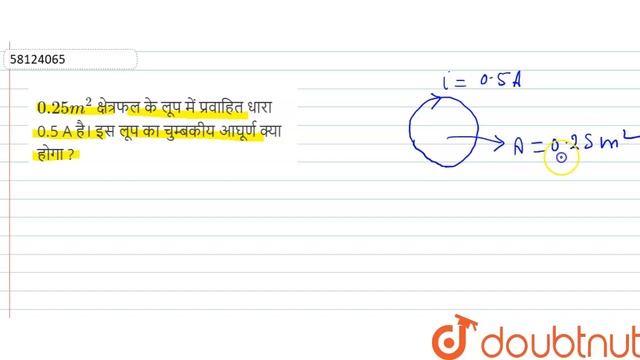 58124065
0.25m² क्षेत्रफल के लूप में प्रवाहित धारा
0.5 A है। इस लूप का चुम्बकीय आघूर्ण क्या
होगा ?
i = 0.5A
A = 0.25 m²
doubtnut